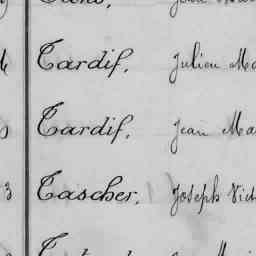 Tardif, Julien Ma
Tardif, Jean Ma
3 Tascher, Joseph Vict